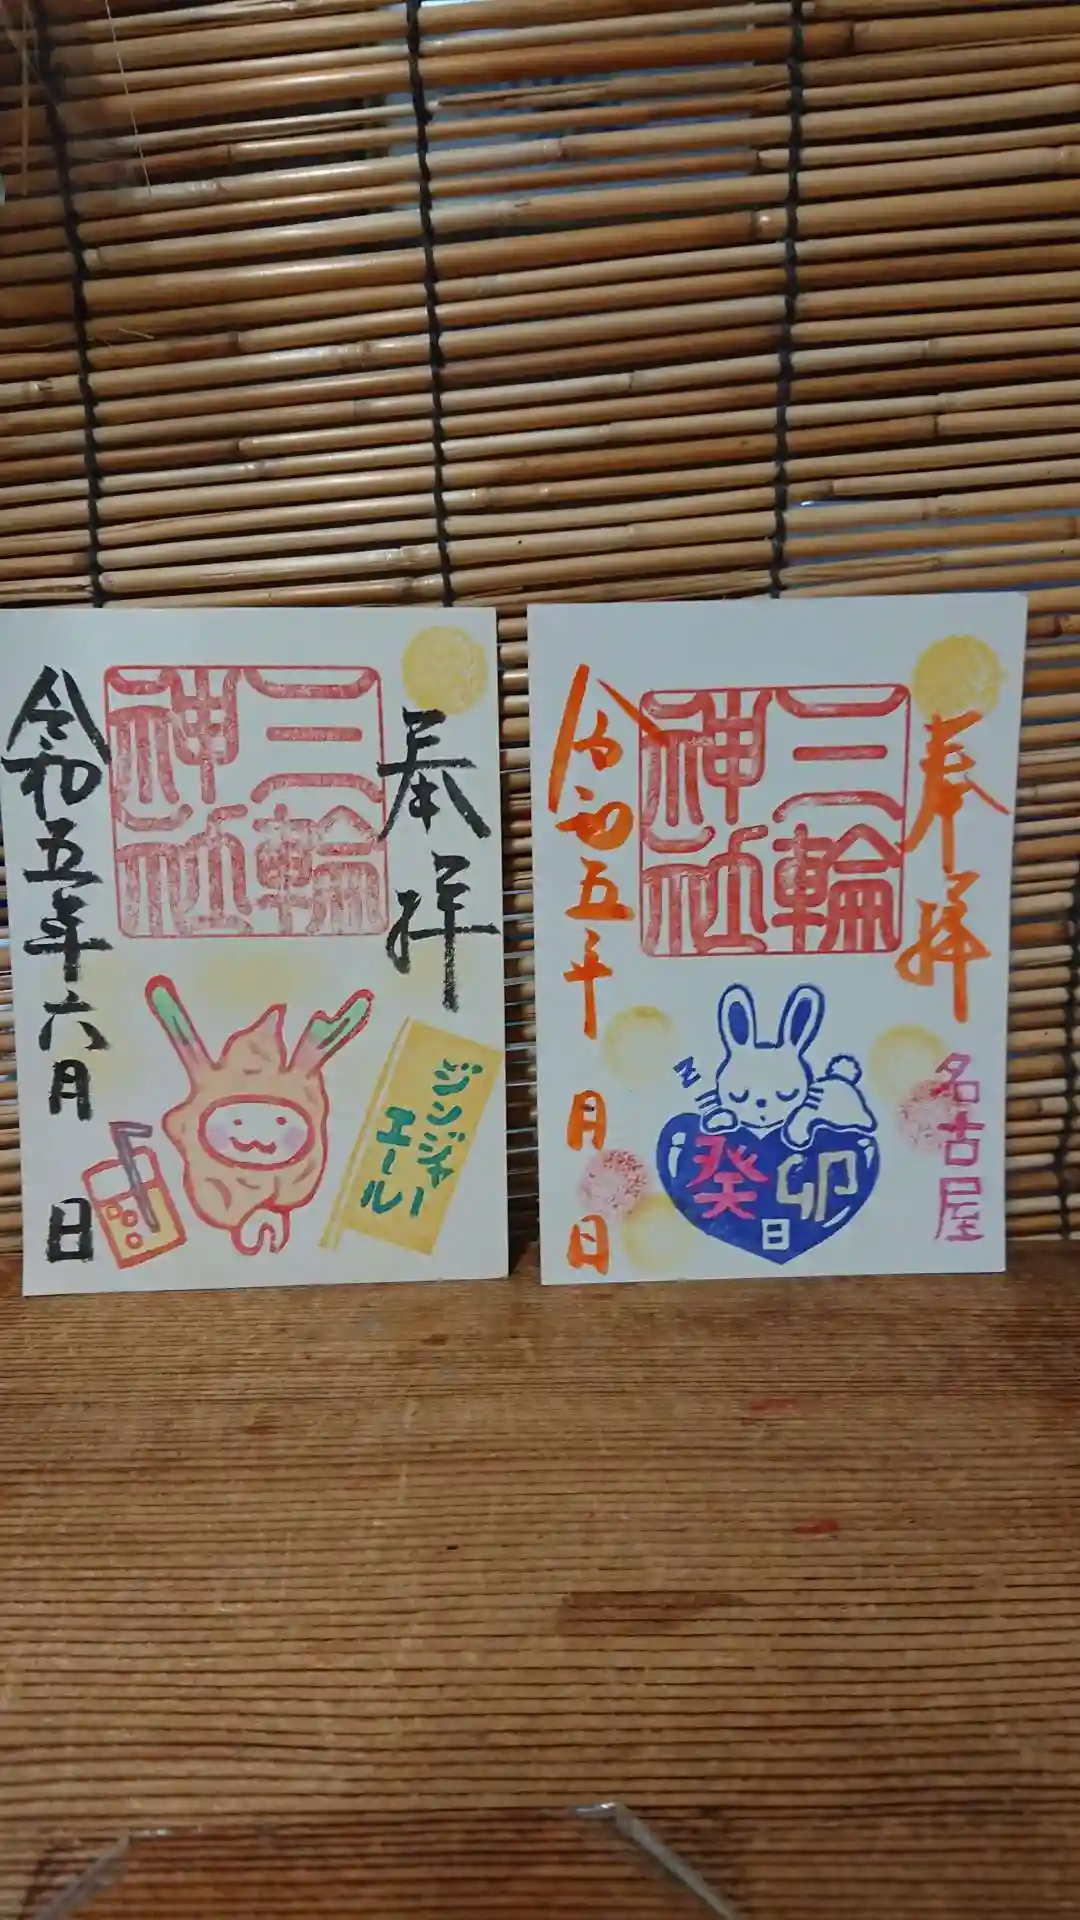 奉拝
三輪
神社
令和五年六月 日
ジンジャー
エール
奉拝
三輪
神社
令和五年 月 日
名古屋
z
癸卯
日